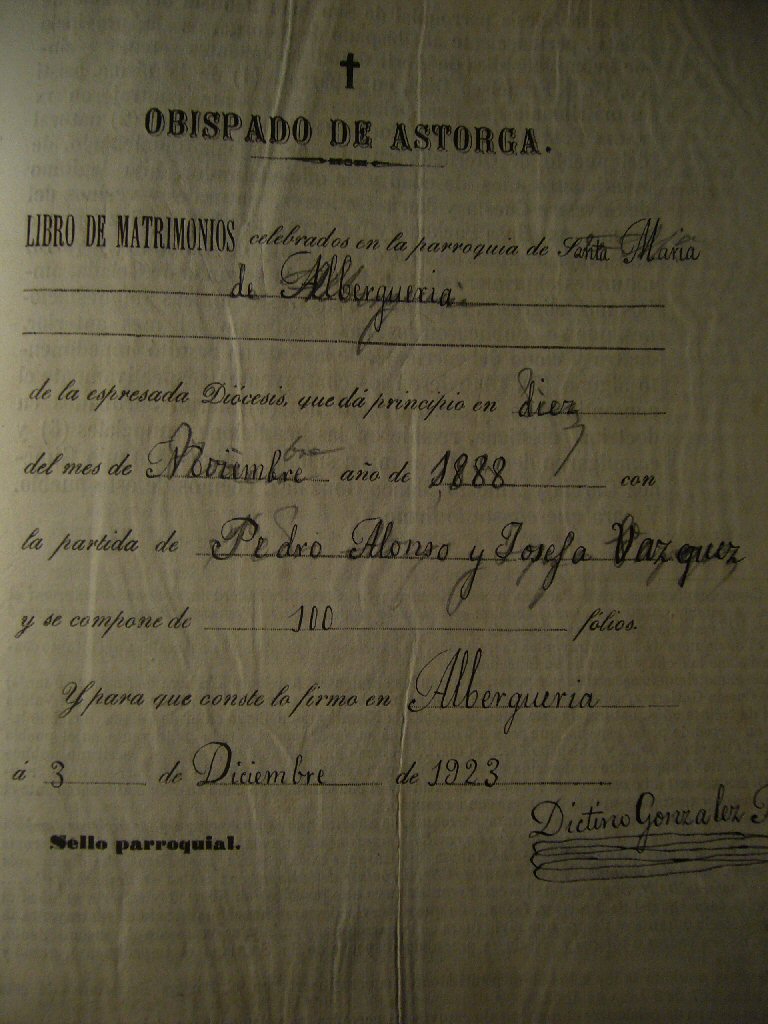 OBISPADO DE ASTORGA.
LIBRO DE MATRIMONIOS celebrados en la parroquia de Santa Maria
de Alberguería
de la espresada Diócesis, que dá principio en diez
del mes de Noviembre año de 1888 con
la partida de Pedro Alonso y Josefa Vazquez
y se compone de 100 fólios.
Y para que conste lo firmo en Albergueria
á 3 de Diciembre de 1923
Dictino Gonzalez
Sello parroquial.